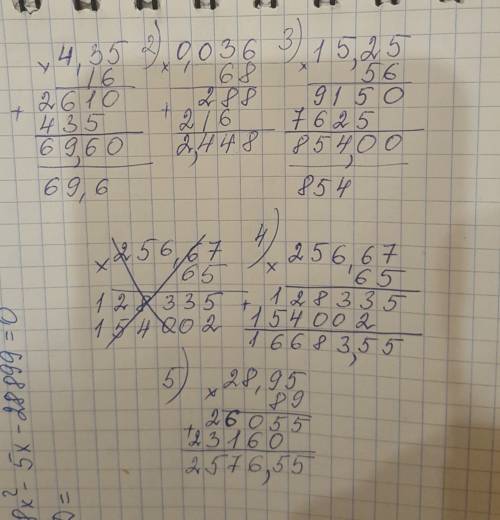 4,35
× 16
+ 2610
435
69,60
69,6
2) 0,036
× 68
+ 288
216
2,448
3) 15,25
× 56
9150
7625
854,00
854
256,67
× 65
128335
154002
4) 256,67
× 65
+ 128335
154002
16683,55
5) 28,95
× 89
+ 26055
23160
2576,55
8x² - 5x - 28899 = 0